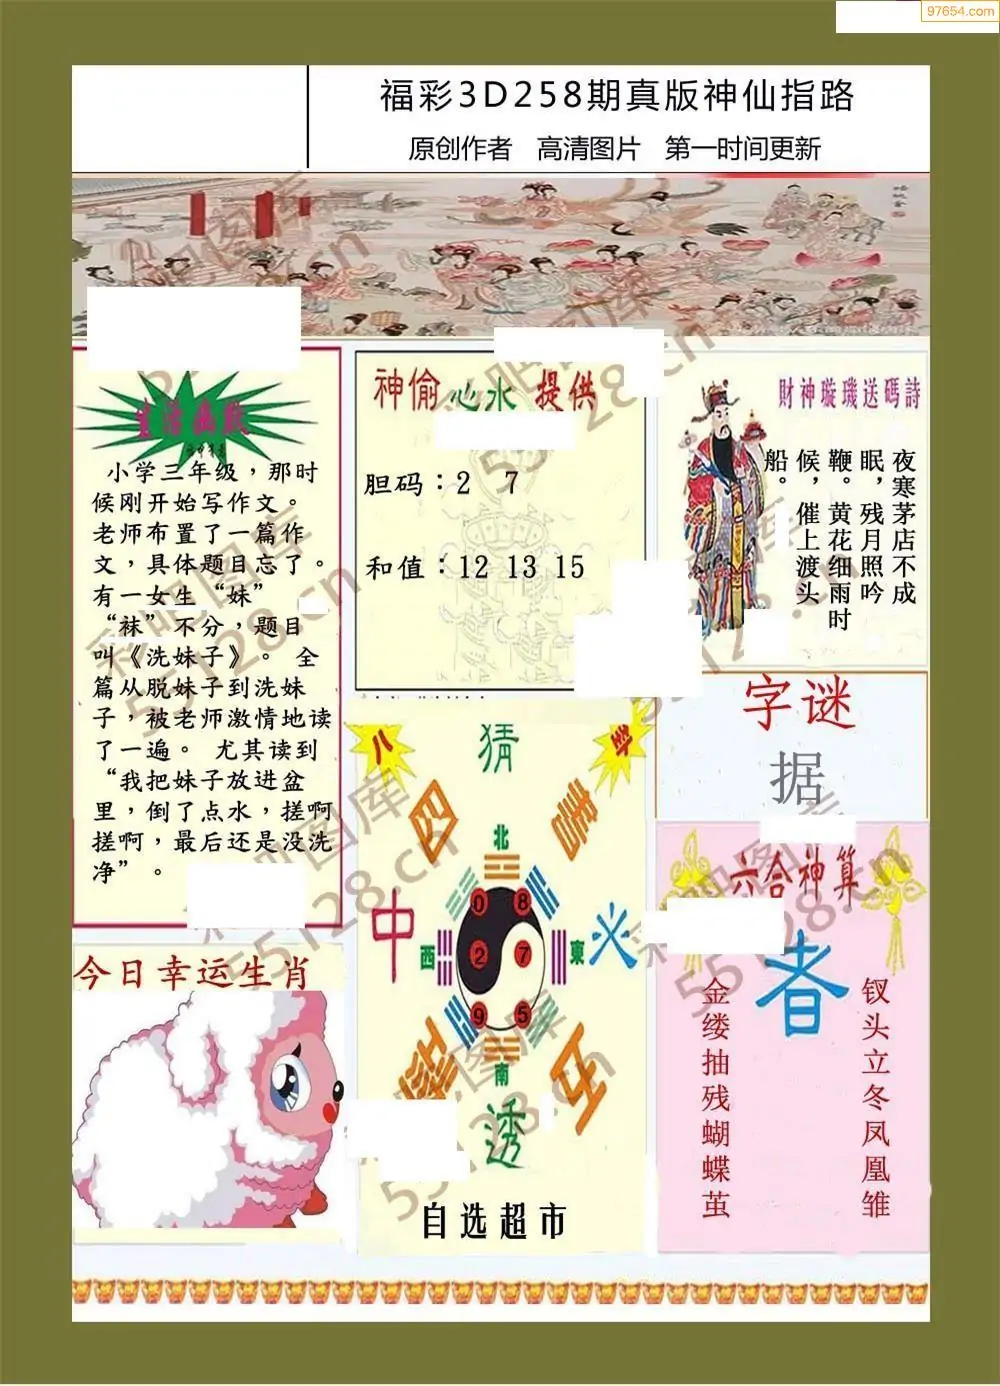 97654.com
福彩3D258期真版神仙指路
原创作者 高清图片 第一时间更新
生活幽默
小学三年级，那时
候刚开始写作文。
老师布置了一篇作
文，具体题目忘了。
有一女生“妹”
“袜”不分，题目
叫《洗妹子》。 全
篇从脱妹子到洗妹
子，被老师激情地读
了一遍。 尤其读到
“我把妹子放进盆
里，倒了点水，搓啊
搓啊，最后还是没洗
净”。
今日幸运生肖
神偷心水 提供
胆码：2 7
和值：12 13 15
八
猜
卦
四
喜
北
中
西
0
8
2
7
9
5
東
火
南
透
自选超市
財神璇璣送碼詩
夜寒茅店不成
眠，残月照吟
鞭。黄花细雨时
候，催上渡头
船。
字谜
据
六合神算
者
钗头立冬凤凰雏
金缕抽残蝴蝶茧
彩吧图库
55128.cn